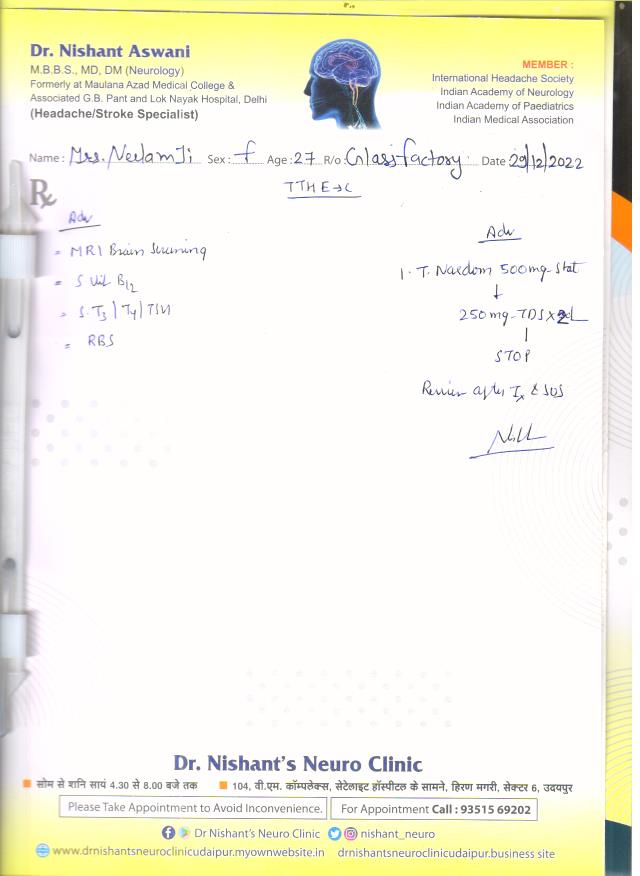 Dr. Nishant Aswani
M.B.B.S., MD, DM (Neurology)
Formerly at Maulana Azad Medical College &
Associated G.B. Pant and Lok Nayak Hospital, Delhi
(Headache/Stroke Specialist)
MEMBER :
International Headache Society
Indian Academy of Neurology
Indian Academy of Paediatrics
Indian Medical Association
Name : Mrs. Neelam Ji Sex : F Age : 27 R/o : Glass factory Date 29/12/2022
Rx
TTH E→C
Adv
= MRI Brain Screening
= S Vit B12
= S. T3 | T4 | TSH
= RBS
Adv
1. T. Naxdom 500mg Stat
↓
250 mg TDS x 2d
|
STOP
Review after Ix & SOS
Dr. Nishant's Neuro Clinic
सोम से शनि सायं 4.30 से 8.00 बजे तक 104, वी.एम. कॉम्पलेक्स, सेटेलाइट हॉस्पीटल के सामने, हिरण मगरी, सेक्टर 6, उदयपुर
Please Take Appointment to Avoid Inconvenience. For Appointment Call : 93515 69202
Dr Nishant's Neuro Clinic nishant_neuro
www.drnishantsneuroclinicudaipur.myownwebsite.in drnishantsneuroclinicudaipur.business site